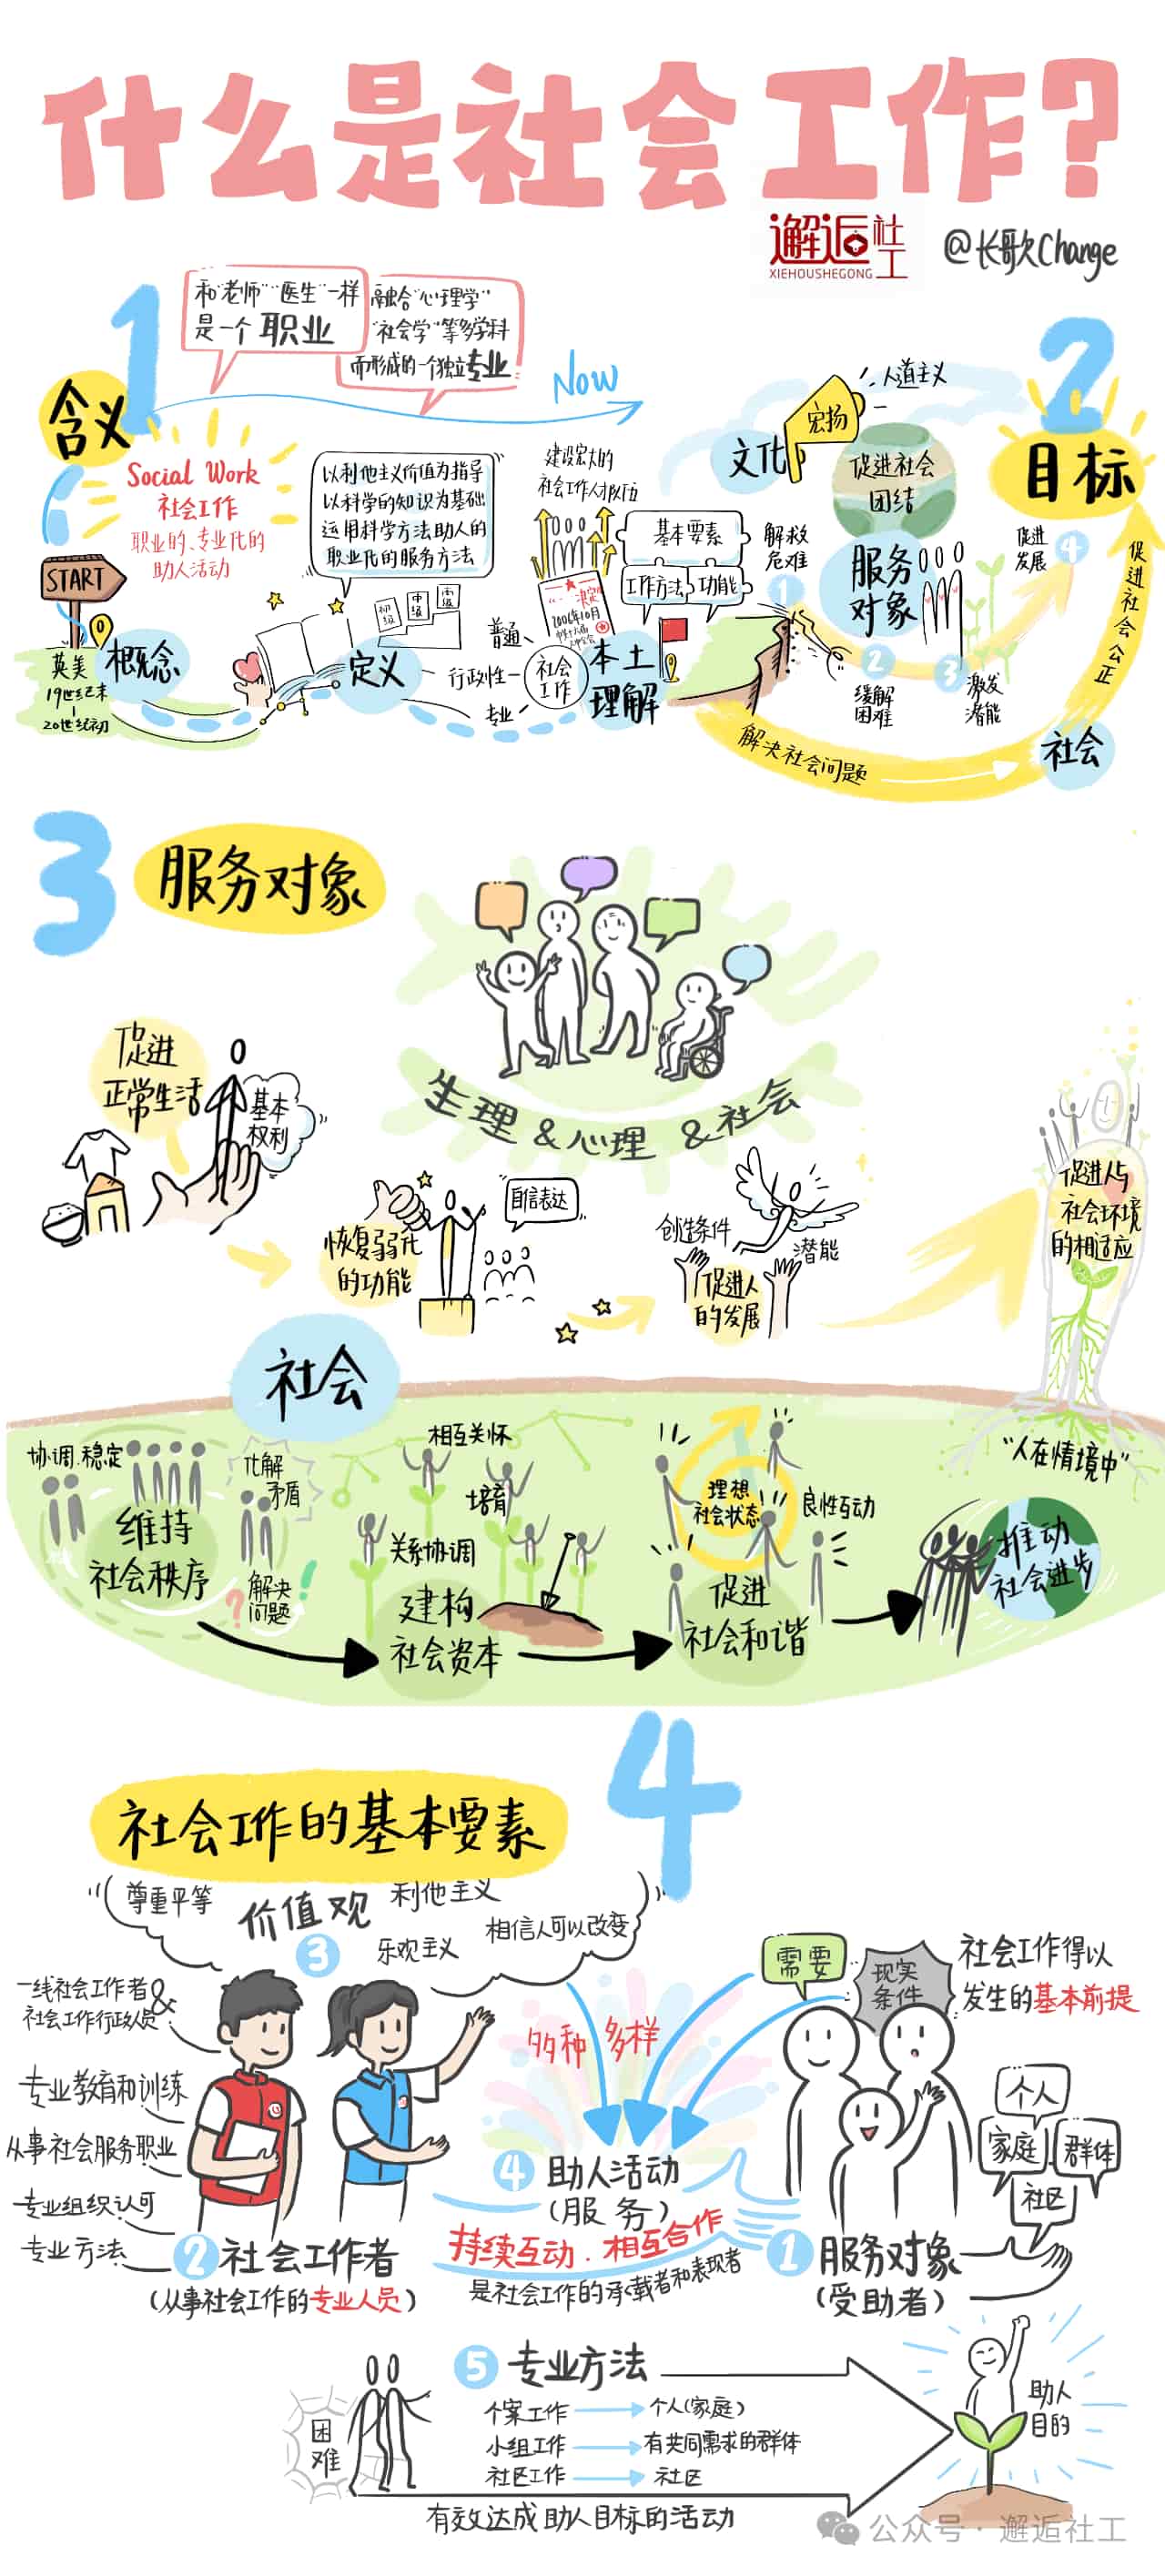 什么是社会工作?
邂逅社工
XIEHOUSHEGONG
@长歌欠Change
1
含义
和"老师""医生"一样
是一个职业
融合"心理学"
"社会学"等多学科
而形成的一个独立专业
Now
Social Work
社会工作
职业的、专业化的
助人活动
START
英美
19世纪末
20世纪初
概念
以利他主义价值为指导
以科学的知识为基础
运用科学方法助人的
职业化的服务方法
初级
中级
高级
定义
普通
行政性
专业
社会
工作
建设宏大的
社会工作人才队伍
决定
2006年10月
本土
理解
基本要素
工作方法
功能
2
目标
文化
宏扬
人道主义
促进社会
团结
服务
对象
解救
危难
1
2
缓解
困难
3
激发
潜能
促进
发展
4
解决社会问题
社会
促进社会公正
3
服务对象
生理&心理&社会
促进
正常生活
基本
权利
恢复弱化
的功能
自信表达
创造条件
潜能
促进人
的发展
促进人与
社会环境
的相适应
"人在情境中"
社会
协调.稳定
化解
矛盾
维持
社会秩序
解决
问题
?
!
相互关怀
培育
关系协调
建构
社会资本
理想
社会状态
良性互动
促进
社会和谐
推动
社会进步
4
社会工作的基本要素
尊重平等
价值观
利他主义
3
乐观主义
相信人可以改变
一线社会工作者&
社会工作行政人员
专业教育和训练
从事社会服务职业
专业组织认可
专业方法
2 社会工作者
(从事社会工作的专业人员)
多种多样
4 助人活动
(服务)
持续互动.相互合作
是社会工作的承载者和表现者
需要
现实
条件
社会工作得以
发生的基本前提
个人
家庭
群体
社区
1 服务对象
(受助者)
困难
5 专业方法
个案工作 个人(家庭)
小组工作 有共同需求的群体
社区工作 社区
有效达成助人目标的活动
助人
目的
公众号·邂逅社工